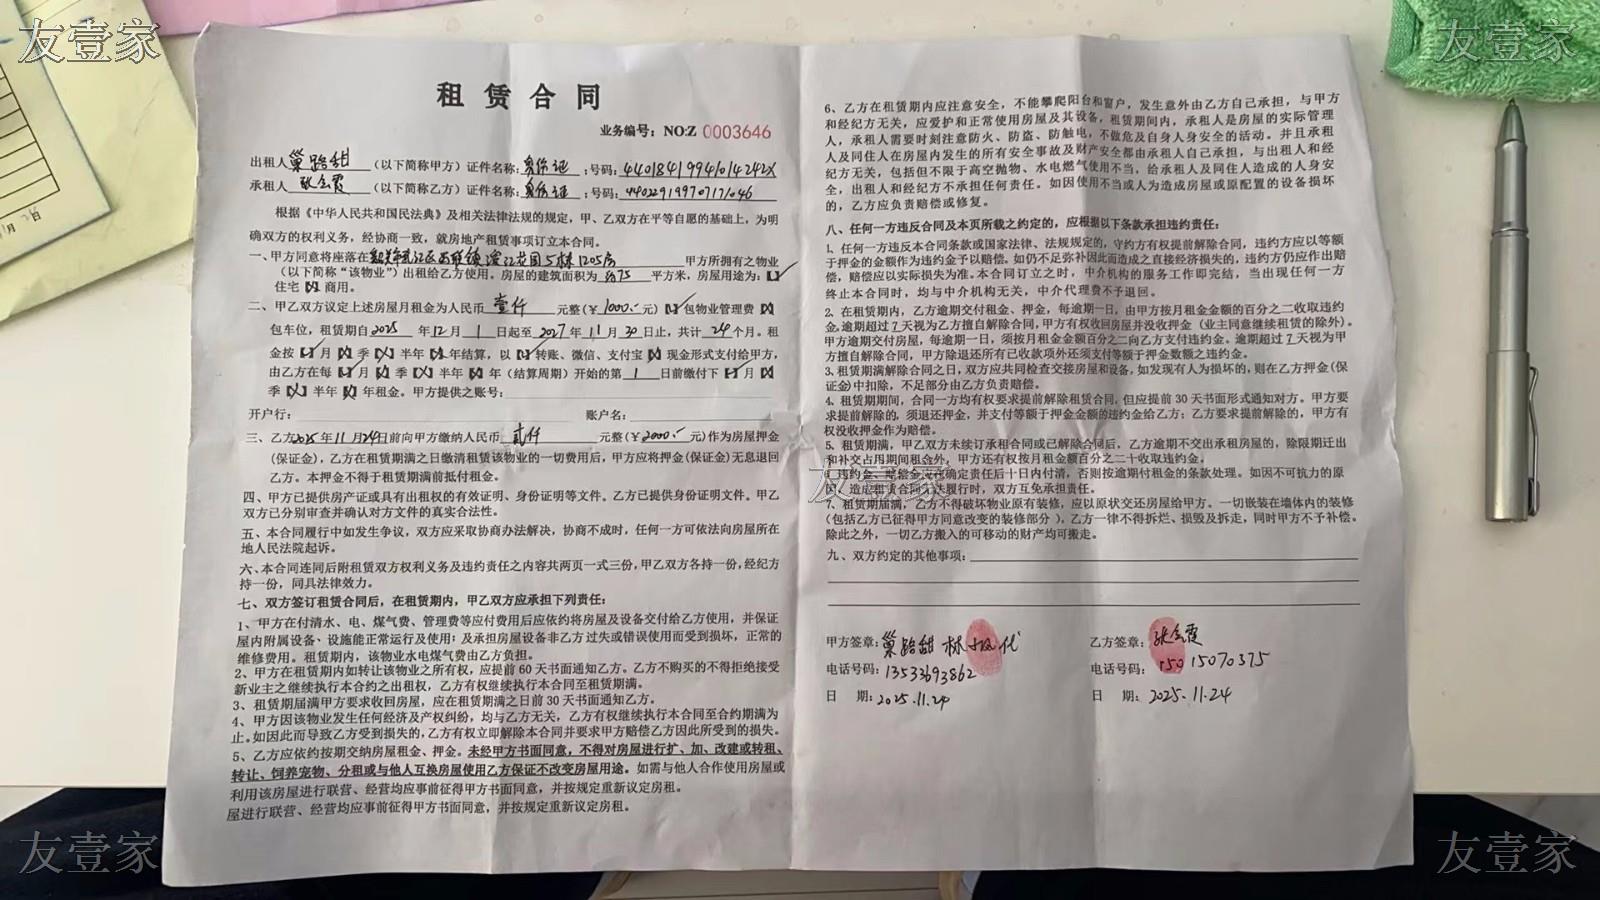 友壹家
友壹家
租赁合同
业务编号：NO:Z 0003646
出租人巢贻甜（以下简称甲方）证件名称：身份证；号码：44018419940101424２X
承租人 张会霞（以下简称乙方）证件名称：身份证；号码：
根据《中华人民共和国民法典》及相关法律法规的规定，甲、乙双方在平等自愿的基础上，为明
确双方的权利义务，经协商一致，就房地产租赁事项订立本合同。
一、甲方同意将座落在韶关市武江区西联镇滨江花园5栋1205房甲方所拥有之物业
（以下简称“该物业”）出租给乙方使用。房屋的建筑面积为约75平方米，房屋用途为：【✓】
住宅【X】商用。
二、甲乙双方议定上述房屋月租金为人民币壹仟元整(￥1000.-元)【✓】包物业管理费【X】
包车位，租赁期自2025年12月1日起至2027年11月30日止，共计24个月。租
金按【✓】月【X】季【X】半年【X】年结算，以【✓】转账、微信、支付宝【X】现金形式支付给甲方，
由乙方在每【✓】月【X】季【X】半年【X】年（结算周期）开始的第1日前缴付下【✓】月【X】
季【X】半年【X】年租金。甲方提供之账号：
开户行： 账户名：
三、乙方2025年11月24日前向甲方缴纳人民币贰仟元整(￥2000.-元)作为房屋押金
(保证金)，乙方在租赁期满之日缴清租赁该物业的一切费用后，甲方应将押金(保证金)无息退回
乙方。本押金不得于租赁期满前抵付租金。
四、甲方已提供房产证或具有出租权的有效证明、身份证明等文件。乙方已提供身份证明文件。甲乙
双方已分别审查并确认对方文件的真实合法性。
五、本合同履行中如发生争议，双方应采取协商办法解决，协商不成时，任何一方可依法向房屋所在
地人民法院起诉。
六、本合同连同后附租赁双方权利义务及违约责任之内容共两页一式三份，甲乙双方各持一份，经纪方
持一份，同具法律效力。
七、双方签订租赁合同后，在租赁期内，甲乙双方应承担下列责任：
1、甲方在付清水、电、煤气费、管理费等应付费用后应依约将房屋及设备交付给乙方使用，并保证
屋内附属设备、设施能正常运行及使用；及承担房屋设备非乙方过失或错误使用而受到损坏，正常的
维修费用。租赁期内，该物业水电煤气费由乙方负担。
2、甲方在租赁期内如转让该物业之所有权，应提前60天书面通知乙方。乙方不购买的不得拒绝接受
新业主之继续执行本合约之出租权，乙方有权继续执行本合同至租赁期满。
3、租赁期届满甲方要求收回房屋，应在租赁期满之日前30天书面通知乙方。
4、甲方因该物业发生任何经济及产权纠纷，均与乙方无关，乙方有权继续执行本合同至合约期满为
止。如因此而导致乙方受到损失的，乙方有权立即解除本合同并要求甲方赔偿乙方因此所受到的损失。
5、乙方应依约按期交纳房屋租金、押金。未经甲方书面同意，不得对房屋进行扩、加、改建或转租、
转让、饲养宠物、分租或与他人互换房屋使用乙方保证不改变房屋用途。如需与他人合作使用房屋或
利用该房屋进行联营、经营均应事前征得甲方书面同意，并按规定重新议定房租。
屋进行联营、经营均应事前征得甲方书面同意，并按规定重新议定房租。
6、乙方在租赁期内应注意安全，不能攀爬阳台和窗户，发生意外由乙方自己承担，与甲方
和经纪方无关，应爱护和正常使用房屋及其设备，租赁期间内，承租人是房屋的实际管理
人，承租人需要时刻注意防火、防盗、防触电，不做危及自身人身安全的活动。并且承租
人及同住人在房屋内发生的所有安全事故及财产安全都由承租人自己承担，与出租人和经
纪方无关，包括但不限于高空抛物、水电燃气使用不当，给承租人及同住人造成的人身安
全，出租人和经纪方不承担任何责任。如因使用不当或人为造成房屋或原配置的设备损坏
的，乙方应负责赔偿或修复。
八、任何一方违反合同及本页所载之约定的，应根据以下条款承担违约责任：
1. 任何一方违反本合同条款或国家法律、法规规定的，守约方有权提前解除合同，违约方应以等额
于押金的金额作为违约金予以赔偿。如仍不足弥补因此而造成之直接经济损失的，违约方仍应作出赔
偿，赔偿应以实际损失为准。本合同订立之时，中介机构的服务工作即完结，当出现任何一方
终止本合同时，均与中介机构无关，中介代理费不予退回。
2. 在租赁期内，乙方逾期交付租金、押金，每逾期一日，由甲方按月租金金额的百分之二收取违约
金，逾期超过7天视为乙方擅自解除合同，甲方有权收回房屋并没收押金（业主同意继续租赁的除外)。
甲方逾期交付房屋，每逾期一日，须按月租金金额百分之二向乙方支付违约金。逾期超过7天视为甲
方擅自解除合同，甲方除退还所有已收款项外还须支付等额于押金数额之违约金。
3. 租赁期满解除合同之日，双方应共同检查交接房屋和设备，如发现有人为损坏的，则在乙方押金(保
证金)中扣除，不足部分由乙方负责赔偿。
4. 租赁期期间，合同一方均有权要求提前解除租赁合同，但应提前30天书面形式通知对方。甲方要
求提前解除的，须退还押金，并支付等额于押金金额的违约金给乙方；乙方要求提前解除的，甲方有
权没收押金作为赔偿。
5. 租赁期满，甲乙双方未续订承租合同或已解除合同后，乙方逾期不交出承租房屋的，除限期迁出
和补交占用期间租金外，甲方还有权按月租金额百分之二十收取违约金。
违约金、赔偿金应在确定责任后十日内付清，否则按逾期付租金的条款处理。如因不可抗力的原
因，造成租赁合同无法履行时，双方互免承担责任。
友壹家
7. 租赁期届满，乙方不得破坏物业原有装修，应以原状交还房屋给甲方。一切嵌装在墙体内的装修
(包括乙方已征得甲方同意改变的装修部分)，乙方一律不得拆烂、损毁及拆走，同时甲方不予补偿。
除此之外，一切乙方搬入的可移动的财产均可搬走。
九、双方约定的其他事项：
甲方签章：巢贻甜 林 代
电话号码：13533693862
日 期：2025.11.24
乙方签章：张会霞
电话号码：15015070375
日 期：2025.11.24
友壹家
友壹家